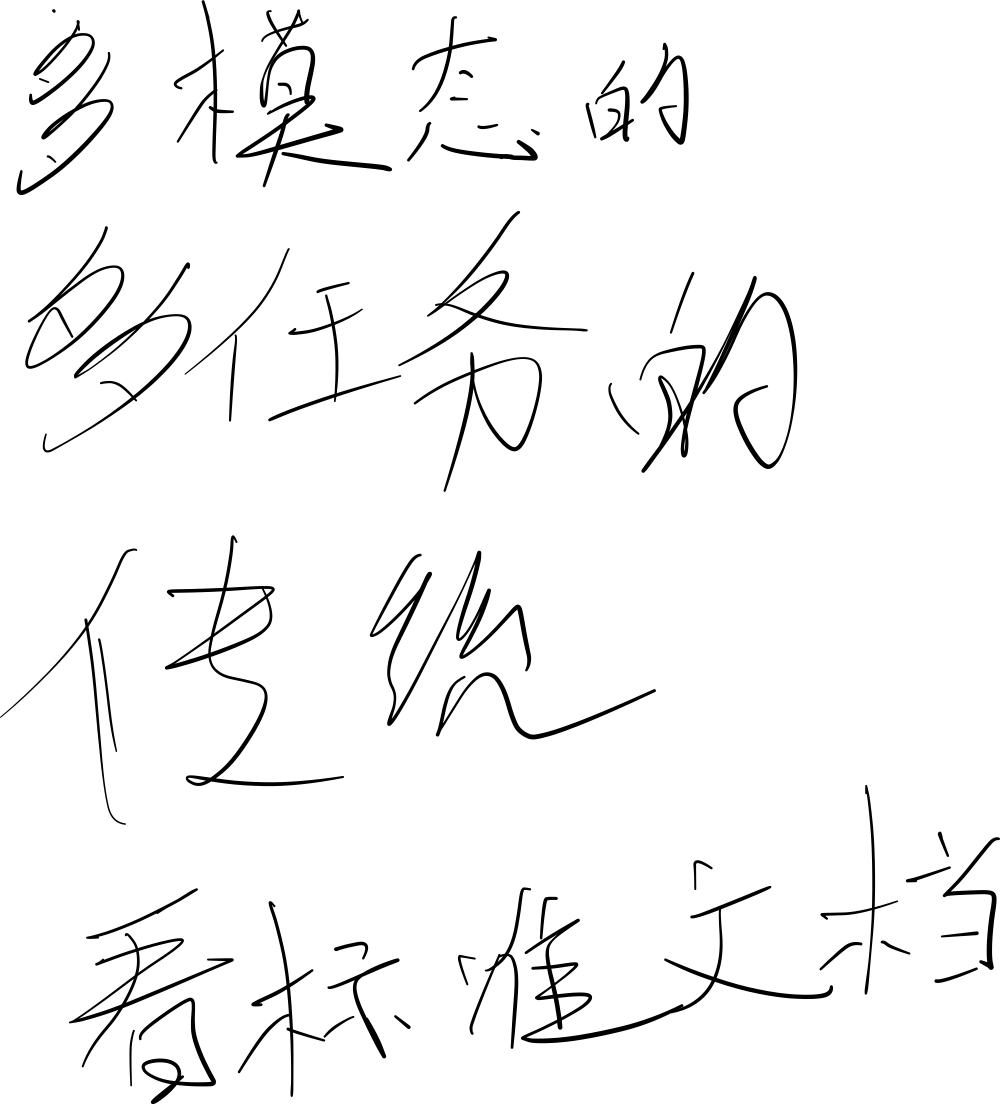 多模态的
多任务的
传统
看标准文档